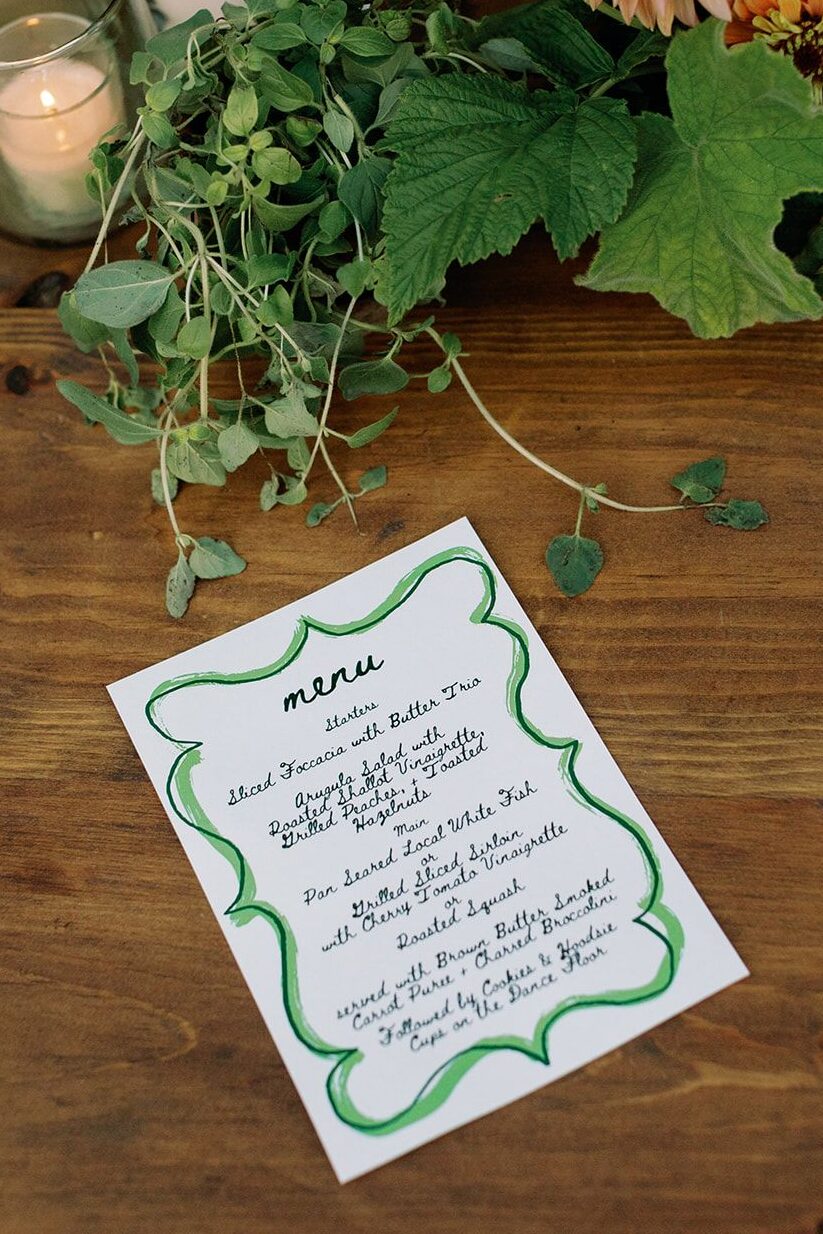 menu
Starters
Sliced Foccacia with Butter Trio
Arugula Salad with
Roasted Shallot Vinaigrette,
Grilled Peaches, + Toasted
Hazelnuts
Main
Pan Seared Local White Fish
or
Grilled Sliced Sirloin
with Cherry Tomato Vinaigrette
or
Roasted Squash
served with Brown Butter Smoked
Carrot Puree + Charred Broccolini
Followed by Cookies & Hoodsie
Cups on the Dance Floor